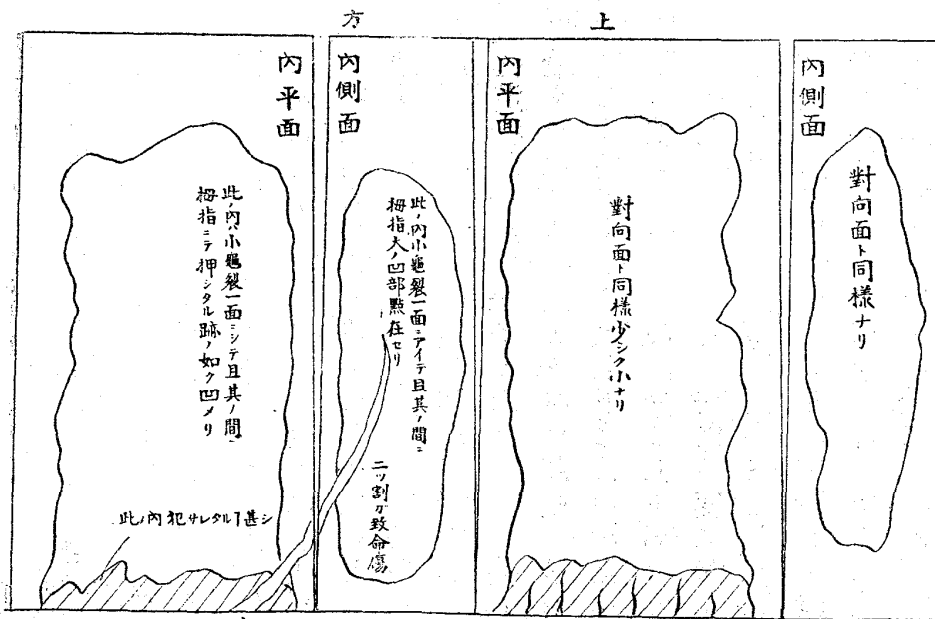 上方
內側面
對向面ト同樣ナリ
內平面
對向面ト同樣少シク小ナリ
內側面
此ノ內小龜裂一面ニアイテ且其ノ間ニ
拇指大ノ凹部點在セリ
二ッ割ガ致命傷
內平面
此ノ內ハ小龜裂一面ニシテ且其ノ間ニ
拇指ニテ押シタル跡ノ如ク凹メリ
此ノ內犯サレタルヿ甚シ